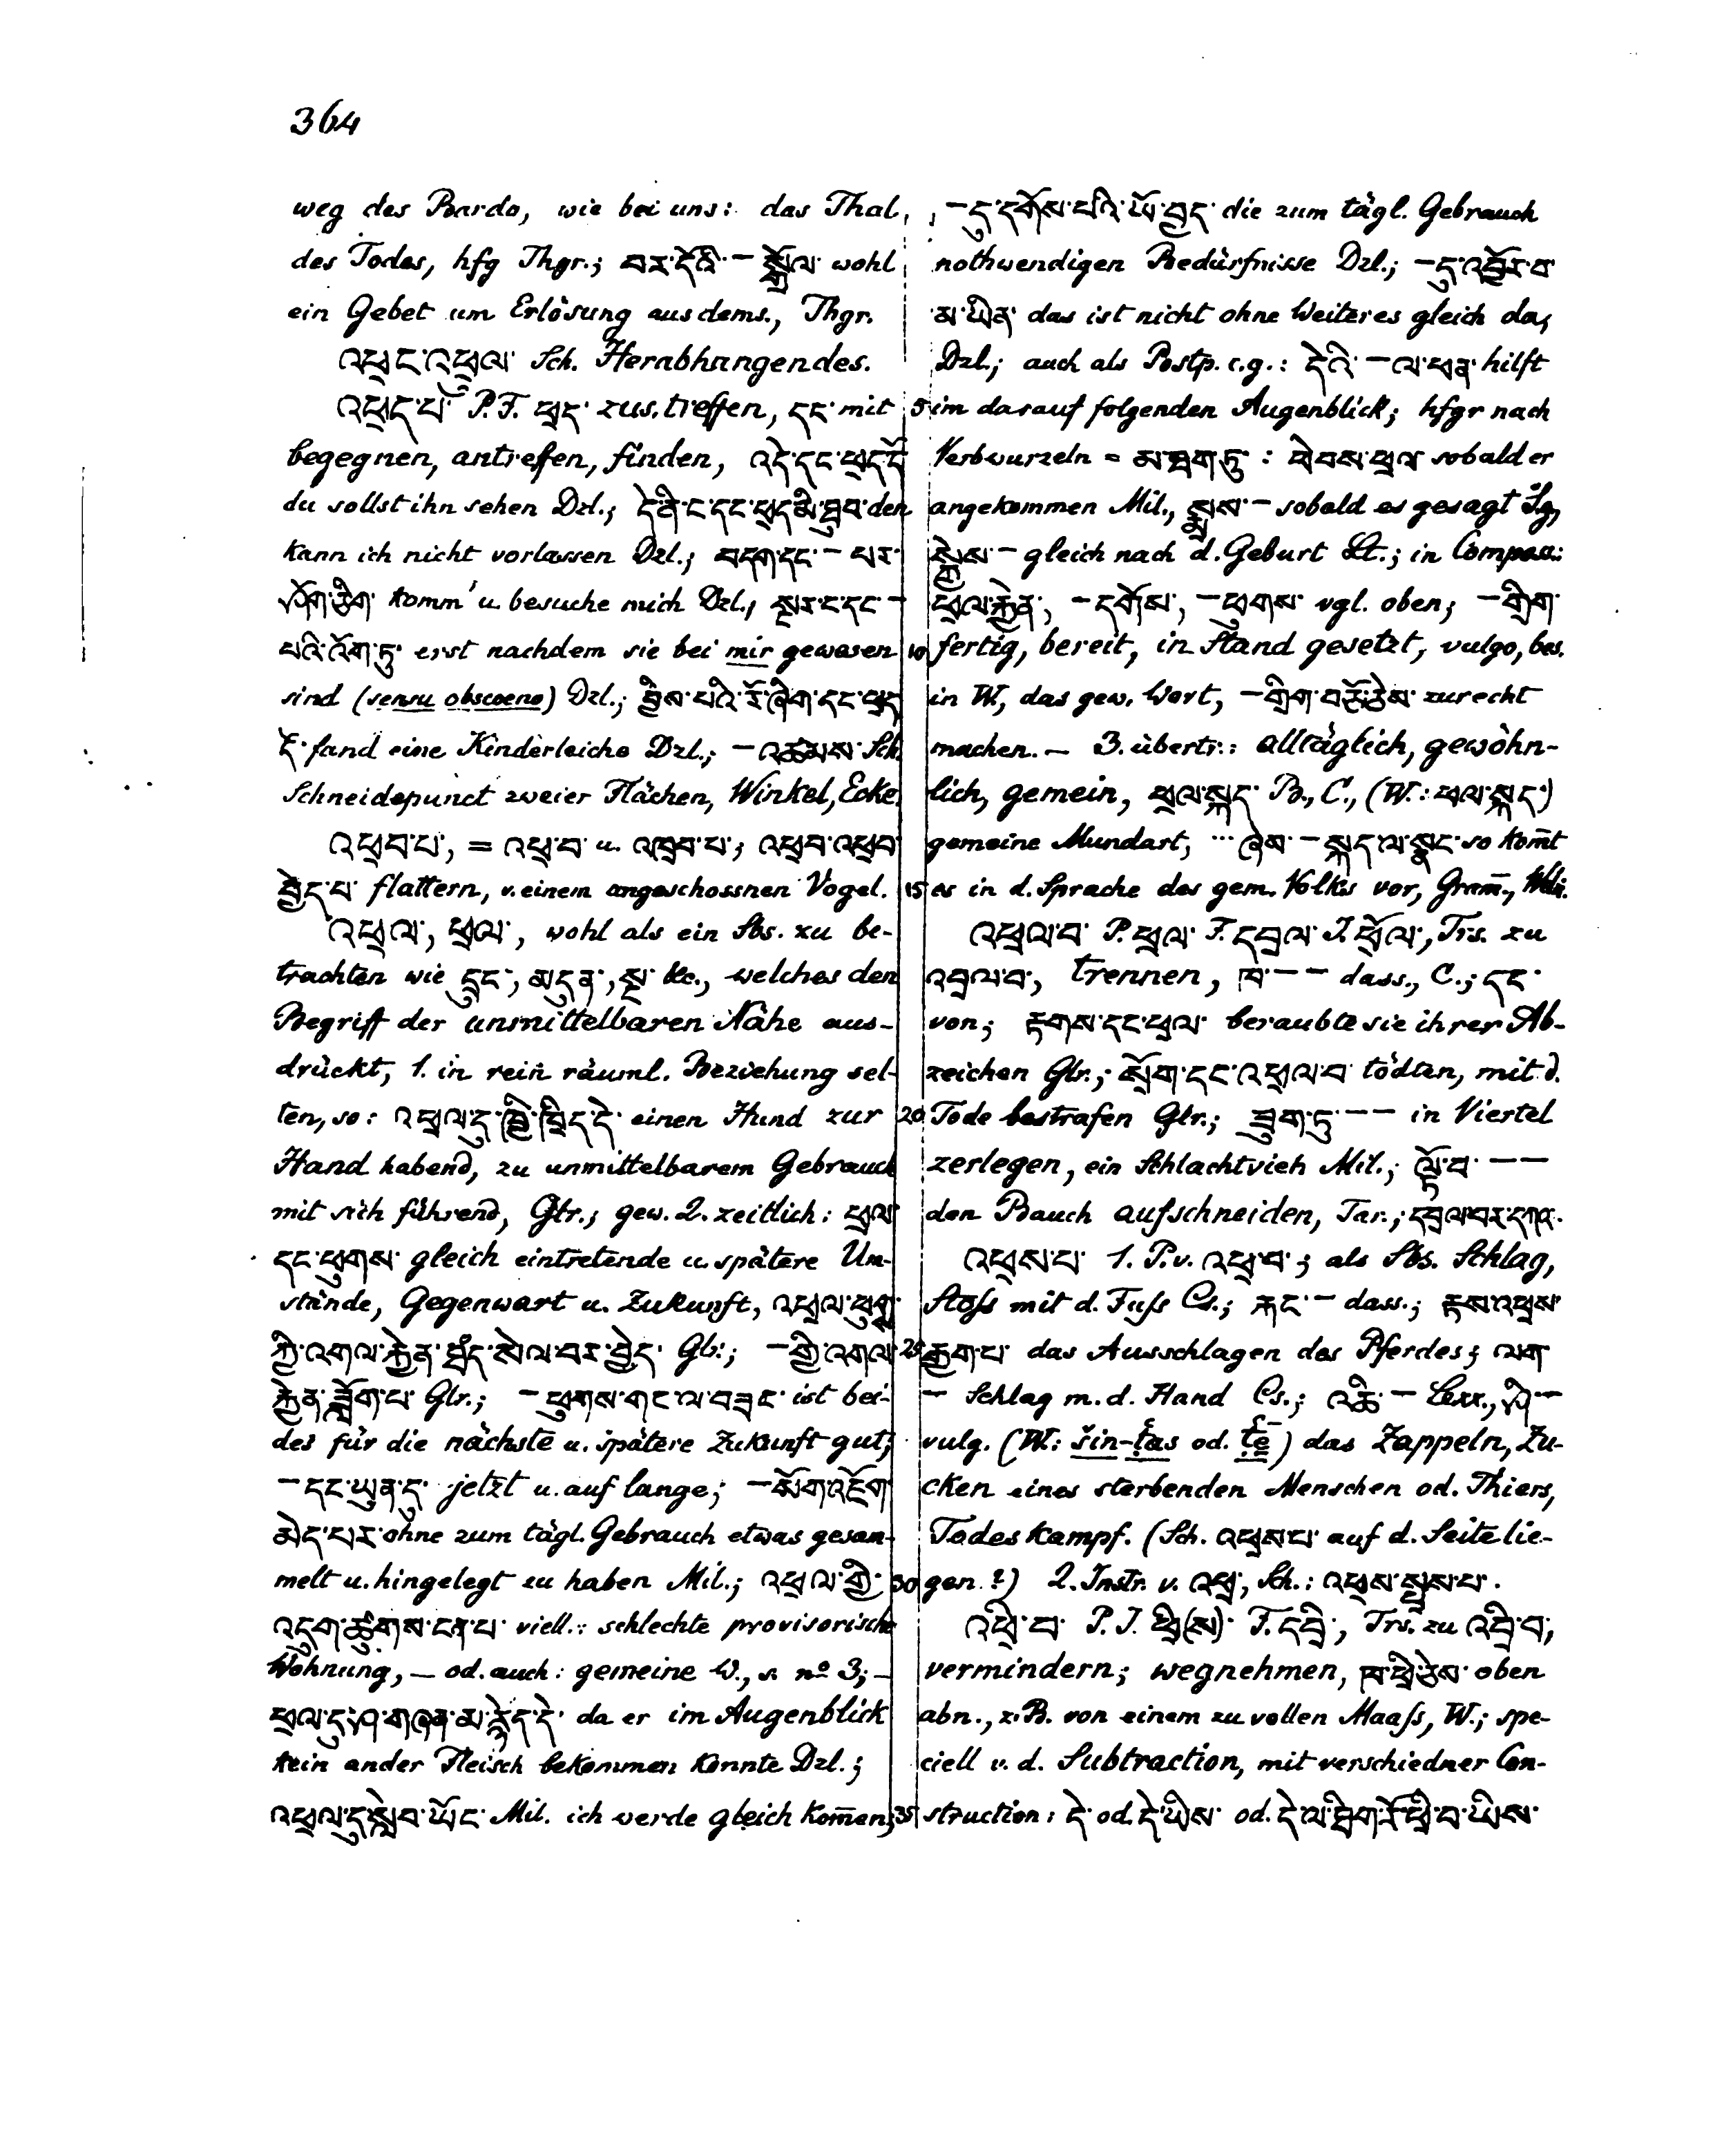 364
weg des Bardo, wie bei uns: das Thal
des Todes, hfg Thgr.; བར་དོའི་ – སྒྲོལ་ wohl
ein Gebet um Erlösung aus dems., Thgr.
འཕྲང་འཕྲལ་ Sch. Herabhängendes.
འཕྲད་པ་ P. F. ཕྲད་ zus. treffen, དང་ mit
begegnen, antreffen, finden, འདི་དང་ཕྲད་དོ་
du sollst ihn sehen Dzl.; དེ་ནི་ང་དང་ཕྲད་མི་ཐུབ་ den
kann ich nicht vorlassen Dzl.; བདག་དང་ – པར་
ཤོག་ཅིག་ komm' u. besuche mich Dzl.; སྔར་ང་དང་ –
པའི་འོག་ཏུ་ erst nachdem sie bei mir gewesen
sind (sensu obscoeno) Dzl.; བྱིས་པའི་རོ་ཞིག་དང་ཕྲད་
དེ་ fand eine Kinderleiche Dzl.; – འཚམས་ Sch.
Schneidepunct zweier Flächen, Winkel, Ecke.
འཕྲབ་པ་, = འཕྲ་བ་ u. འཁྲབ་པ་; འཕྲབ་འཕྲབ་
བྱེད་པ་ flattern, v. einem angeschossnen Vogel.
འཕྲལ་, ཕྲལ་, wohl als ein Sbs. zu be-
trachten wie དྲུང་, མདུན་, སྔ་ &c., welches den
Begriff der unmittelbaren Nähe aus-
drückt, 1. in rein räuml. Beziehung sel-
ten, so: འཕྲལ་དུ་ཁྱི་ཁྲིད་དེ་ einen Hund zur
Hand habend, zu unmittelbarem Gebrauch
mit sich führend, Glr.; gew. 2. zeitlich: ཕྲལ་
དང་ཕུགས་ gleich eintretende u. spätere Um-
stände, Gegenwart u. Zukunft, འཕྲལ་ཕུགས་
ཀྱི་འགལ་རྐྱེན་ སེལ་བར་བྱེད་ Glr.; – གྱི་འགལ་
རྐྱེན་ཟློག་པ་ Glr.; – ཕུགས་གང་ལ་བཟང་ ist bei-
des für die nächste u. spätere Zukunft gut;
– དང་ཡུན་དུ་ jetzt u. auf lange; – སོག་འཇོག་
མེད་པར་ ohne zum tägl. Gebrauch etwas gesam-
melt u. hingelegt zu haben Mil.; འཕྲལ་གྱི་
འདུག་ཚུགས་ངན་པ་ viell.: schlechte provisorische
Wohnung, – od. auch: gemeine W., s. nº 3; –
ཕྲལ་དུ་ཤ་གཞན་མ་རྙེད་དེ་ da er im Augenblick
kein ander Fleisch bekommen konnte Dzl.;
འཕྲལ་དུ་སླེབ་ཡོང་ Mil. ich werde gleich kom̄en;
– དུ་དགོས་པའི་ཡོ་བྱད་ die zum tägl. Gebrauch
nothwendigen Bedürfnisse Dzl.; – དུ་འབྱོར་བ་
མ་ཡིན་ das ist nicht ohne Weiteres gleich da,
Dzl.; auch als Postp. c.g.: དེའི་ – ལ་ཕན་ hilft
5 im darauf folgenden Augenblick; hfgr nach
Verbwurzeln = མ་ཐག་ཏུ་: ཕེབས་ཕྲལ་ sobald er
angekommen Mil., སྨྲས་ – sobald es gesagt Lg.,
སྐྱེས་ – gleich nach d. Geburt Lt.; in Compos.:
ཕྲལ་རྐྱེན་, – དགོས་, – ཕུགས་ vgl. oben; – གྲིག་
10 fertig, bereit, in Stand gesetzt, vulgo, bes.
in W., das gew. Wort, – གྲིག་བཅོ་ཅེས་ zurecht
machen. – 3. übertr.: alltäglich, gewöhn-
lich, gemein, ཕྲལ་སྐད་ B., C., (W.: ཕལ་སྐད་)
gemeine Mundart, … ཞེས་ – སྐད་ལ་སྣང་ so kom̄t
15 es in d. Sprache des gem. Volks vor, Gram̄.,
འཕྲལ་བ་ P. ཕྲལ་ F. དབྲལ་ J. ཕྲོལ་, Trs. zu
འབྲལ་བ་, trennen, ཁ་ – – dass., C.; དང་
von; རྟགས་དང་ཕྲལ་ beraubte sie ihrer Ab-
zeichen Glr.; སྲོག་དང་འཕྲལ་བ་ tödten, mit d.
20 Tode bestrafen Glr.; ཟུག་ཏུ་ – – in Viertel
zerlegen, ein Schlachtvieh Mil.; ལྟོ་བ་ – –
den Bauch aufschneiden, Tar.; དབྲལ་བར་དཀའ་.
འཕྲས་པ་ 1. P. v. འཕྲ་བ་; als Sbs. Schlag,
Stoſs mit d. Fuſs Cs.; རྐང་ – dass.; རྟས་འཕྲས་
25 རྒྱག་པ་ das Ausschlagen des Pferdes; ལག་
– Schlag m. d. Hand Cs.; འཆི་ – Lexx., ཤི་ –
vulg. (W.: šin-ṭas od. ṭē) das Zappeln, Zu-
cken eines sterbenden Menschen od. Thiers,
Todeskampf. (Sch. འཕྲས་པ་ auf d. Seite lie-
30 gen?) 2. Instr. v. འཕྲ་, Sch.: འཕྲས་སྤྲས་པ་.
འཕྲི་བ་ P. J. ཕྲི(ས)་ F. དབྲི་, Trs. zu འབྲི་བ་,
vermindern; wegnehmen, ཁ་ཕྲི་ཅེས་ oben
abn., z.B. von einem zu vollen Maaſs, W.; spe-
ciell v. d. Subtraction, mit verschiedner Con-
35 struction: དེ་ od. དེ་ཡིས་ od. དེ་ལ་ཐིག་རོ་ཕྲི་བ་ཡིས་